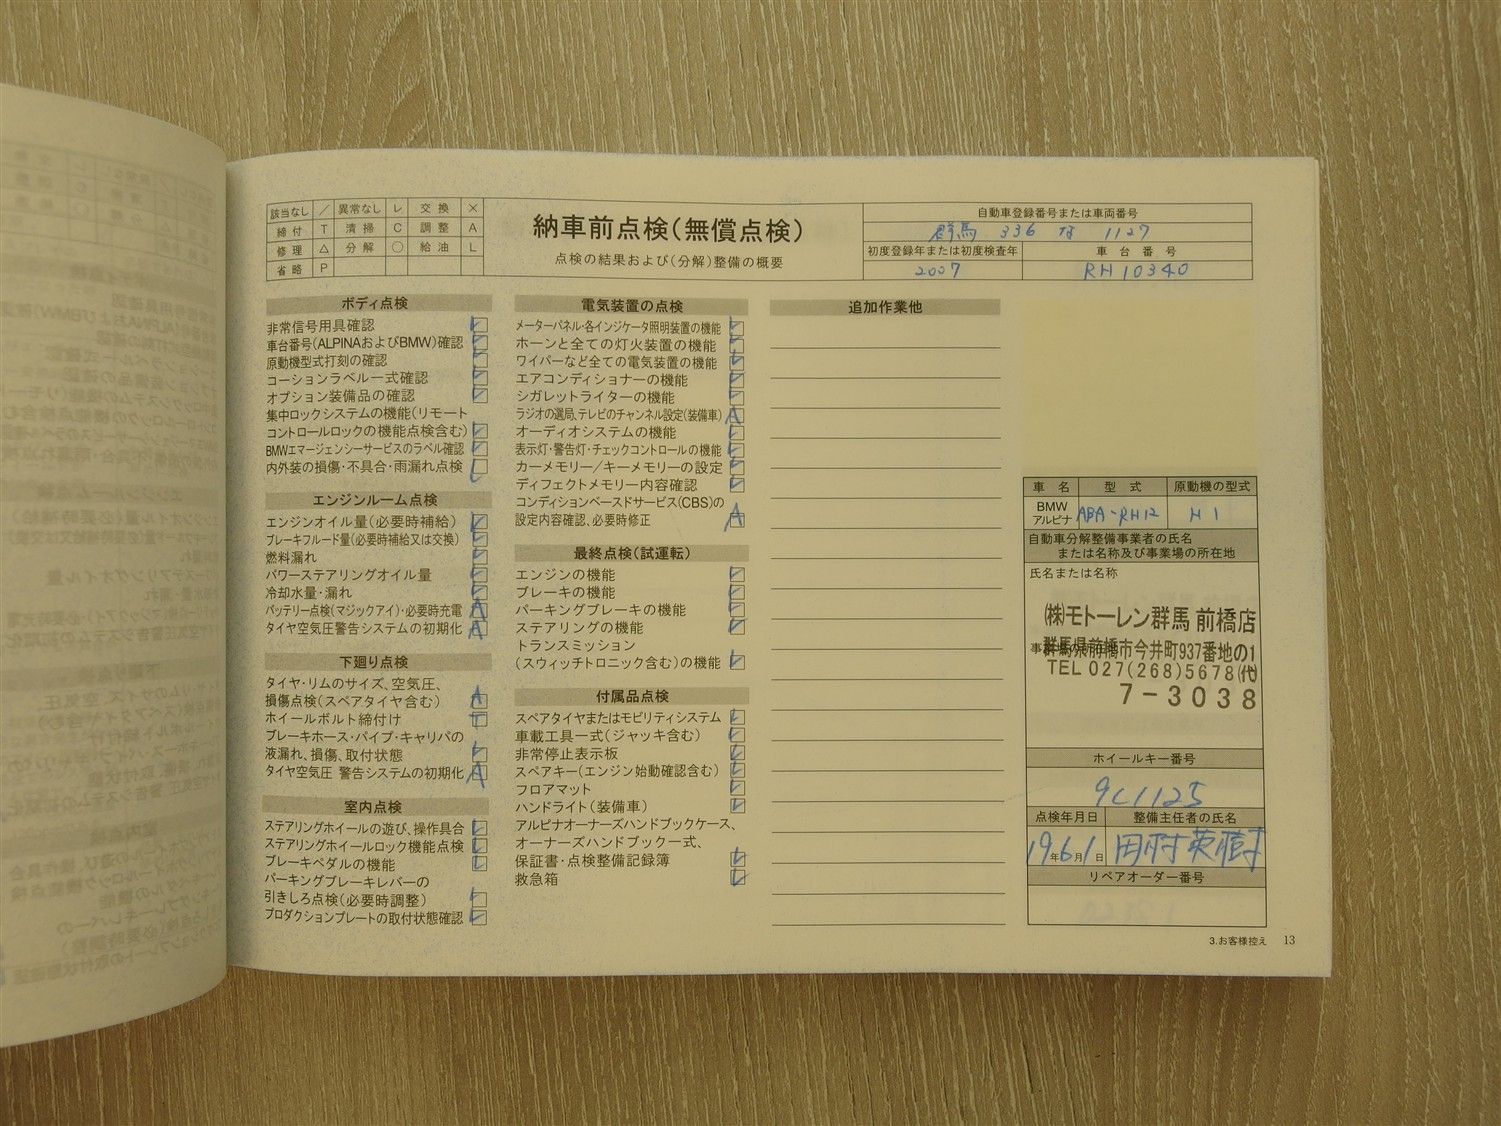 該当なし ／ 異常なし レ 交換 ×
締付 T 清掃 C 調整 A
修理 △ 分解 ○ 給油 L
省略 P
納車前点検(無償点検)
点検の結果および(分解)整備の概要
自動車登録番号または車両番号
群馬 336 な 1127
初度登録年または初度検査年 車台番号
2007 RH10340
ボディ点検
非常信号用具確認
車台番号(ALPINAおよびBMW)確認
原動機型式打刻の確認
コーションラベル一式確認
オプション装備品の確認
集中ロックシステムの機能(リモート
コントロールロックの機能点検含む)
BMWエマージェンシーサービスのラベル確認
内外装の損傷・不具合・雨漏れ点検
エンジンルーム点検
エンジンオイル量(必要時補給)
ブレーキフルード量(必要時補給又は交換)
燃料漏れ
パワーステアリングオイル量
冷却水量・漏れ
バッテリー点検(マジックアイ)・必要時充電 A
タイヤ空気圧警告システムの初期化 A
下廻り点検
タイヤ・リムのサイズ、空気圧、
損傷点検(スペアタイヤ含む) A
ホイールボルト締付け T
ブレーキホース・パイプ・キャリパの
液漏れ、損傷、取付状態
タイヤ空気圧 警告システムの初期化 A
室内点検
ステアリングホイールの遊び、操作具合
ステアリングホイールロック機能点検
ブレーキペダルの機能
パーキングブレーキレバーの
引きしろ点検(必要時調整)
プロダクションプレートの取付状態確認
電気装置の点検
メーターパネル・各インジケータ照明装置の機能
ホーンと全ての灯火装置の機能
ワイパーなど全ての電気装置の機能
エアコンディショナーの機能
シガレットライターの機能
ラジオの選局、テレビのチャンネル設定(装備車) A
オーディオシステムの機能
表示灯・警告灯・チェックコントロールの機能
カーメモリー／キーメモリーの設定
ディフェクトメモリー内容確認
コンディションベースドサービス(CBS)の
設定内容確認、必要時修正 A
最終点検(試運転)
エンジンの機能
ブレーキの機能
パーキングブレーキの機能
ステアリングの機能
トランスミッション
(スウィッチトロニック含む)の機能
付属品点検
スペアタイヤまたはモビリティシステム
車載工具一式(ジャッキ含む)
非常停止表示板
スペアキー(エンジン始動確認含む)
フロアマット
ハンドライト(装備車)
アルピナオーナーズハンドブックケース、
オーナーズハンドブック一式、
保証書・点検整備記録簿
救急箱
追加作業他
車名 型式 原動機の型式
BMW
アルピナ ABA-RH12 H1
自動車分解整備事業者の氏名
または名称及び事業場の所在地
氏名または名称
(株)モトーレン群馬 前橋店
群馬県前橋市今井町937番地の1
TEL 027(268)5678(代)
7-3038
ホイールキー番号
9C1125
点検年月日 整備主任者の氏名
19年6月1日 田村英樹
リペアオーダー番号
3.お客様控え 13